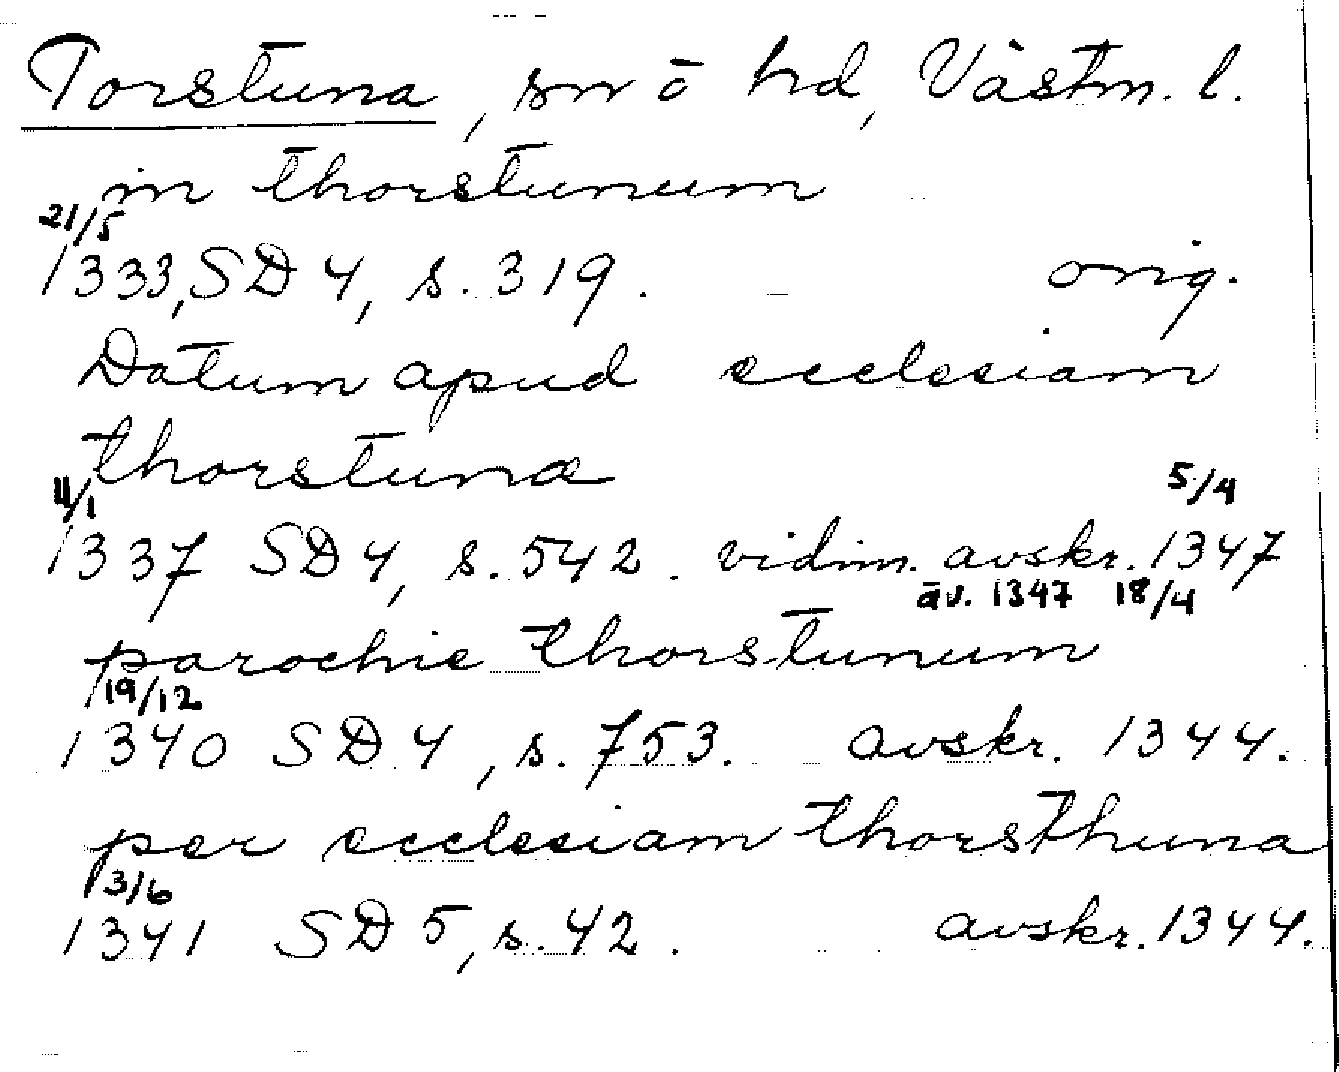 Torstuna, sn o hd, Västm. l.
in thorstunum
21/5
1333, SD 4, s. 319. orig.
Datum apud ecclesiam
thorstuna
11/1 5/4
1337 SD 4, s. 542. vidim. avskr. 1347
äv. 1347 18/4
parochie thorstunum
19/12
1340 SD 4, s. 753. avskr. 1344.
per ecclesiam thorsthuna
3/6
1341 SD 5, s. 42. avskr. 1344.